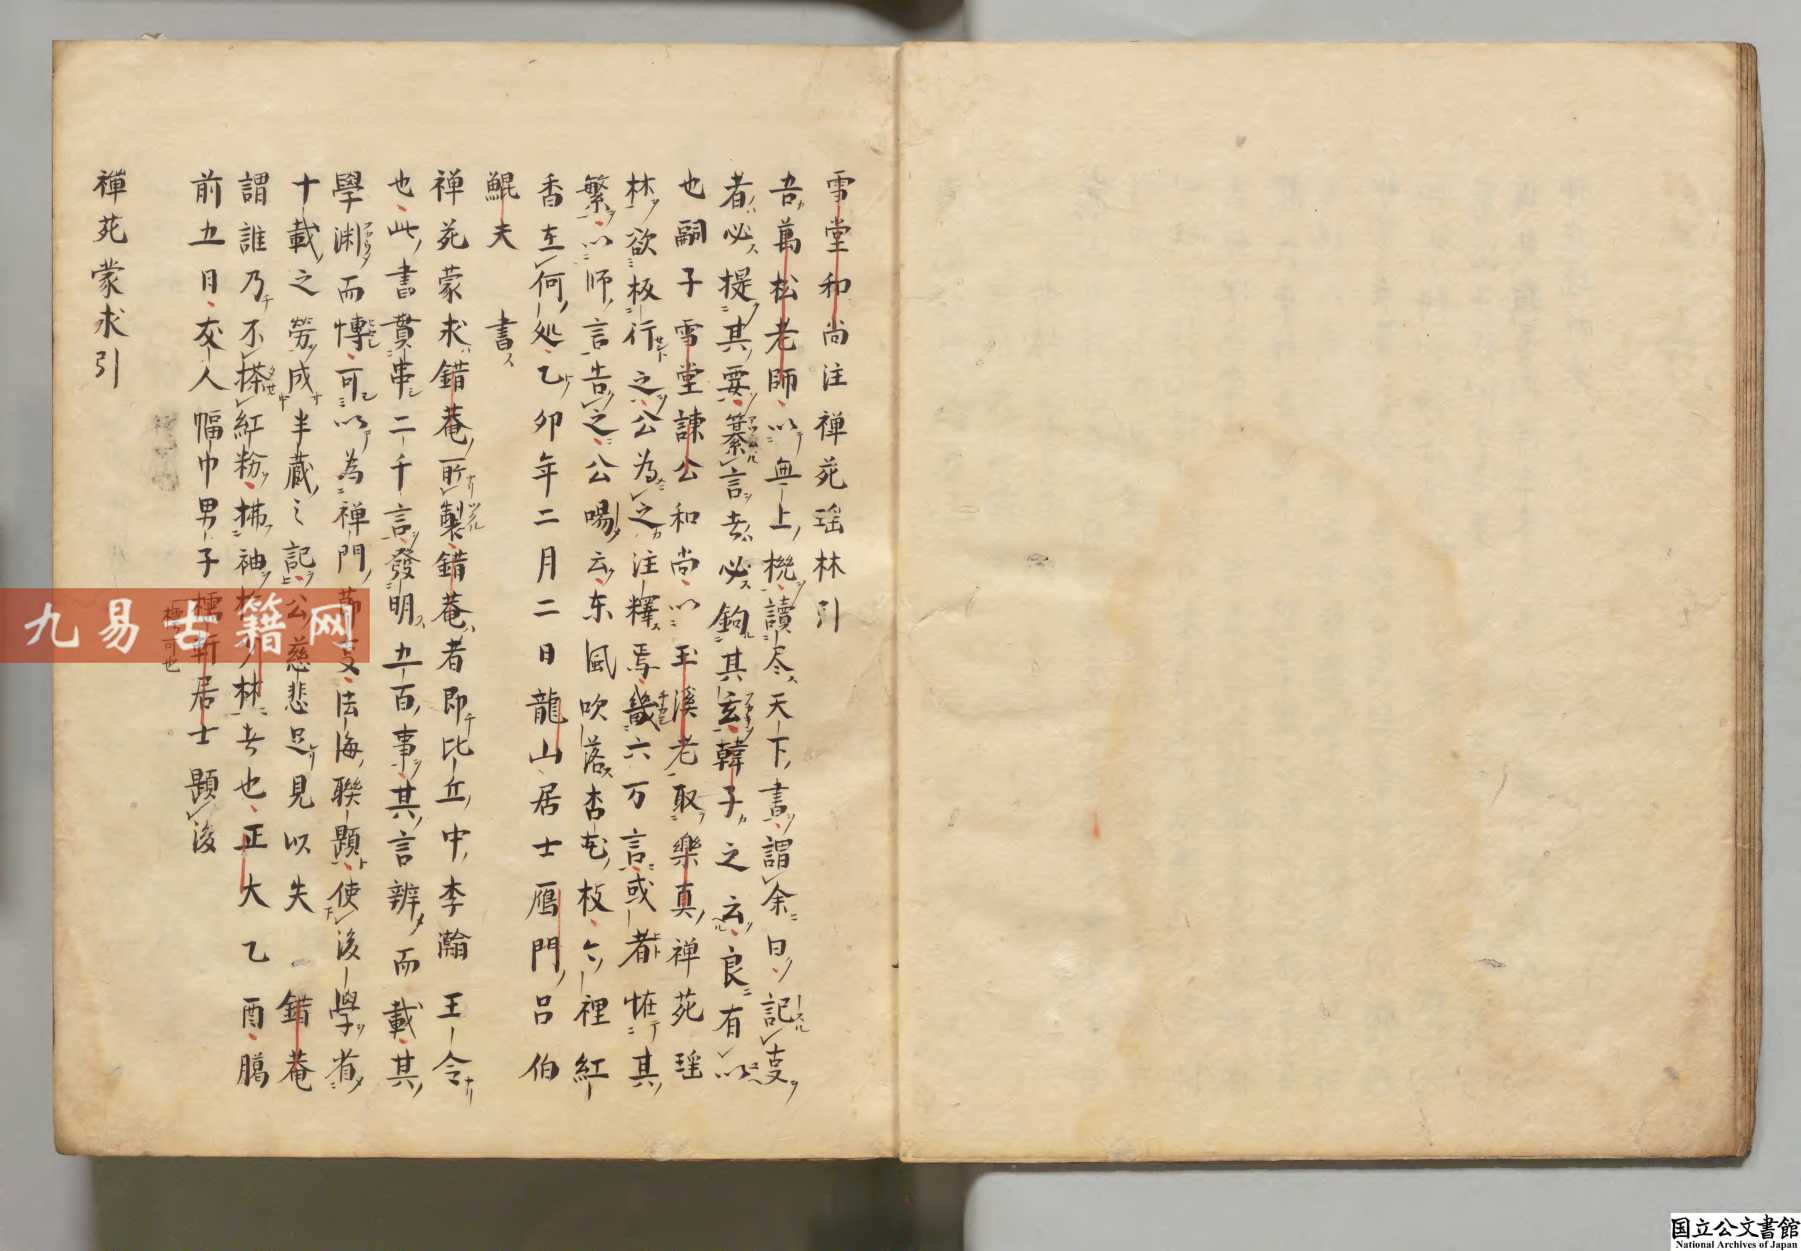 雪堂和尚注禅苑瑶林引
吾萬松老師以無上機讀尽天下書謂余曰記㕝
者必提其要纂言者必鉤其玄韓子之云良有以
也嗣子雪堂諫公和尚以玉溪老取樂真禅苑瑶
林欲板行之公為之注釋焉幾六万言或者恠其
繁以师言告之公喝云东風吹落杏花枝个裡紅
香在何处乙卯年二月二日龍山居士鴈門吕伯
鯤夫　書
禅苑蒙求錯菴所製錯菴者即比丘中李瀚王令
也此書貫串二千言發明五百事其言辨而載其
學渊而博可以為禅門節㕝法海聯題使後學省
十載之勞成半蔵之記公慈悲足見以失錯菴
謂誰乃不搽紅粉拂袖林者也正大乙酉臈
前五日友人幅巾男子樗軒居士題後
禅苑蒙求引
可也
九易古籍网
国立公文書館
National Archives of Japan